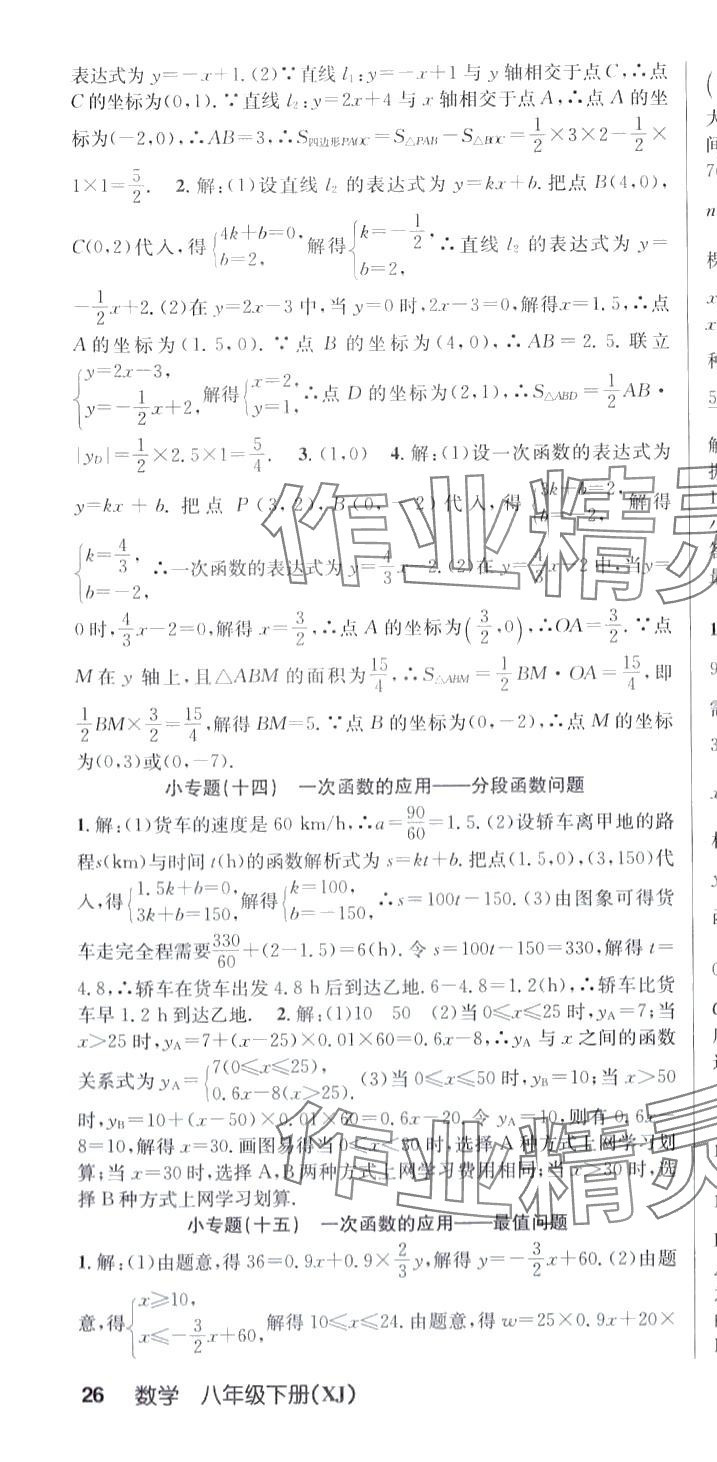 表达式为 y=-x+1.(2)∵直线 l₁:y=-x+1与 y 轴相交于点C,∴点
C的坐标为(0,1).∵直线 l₂:y=2x+4与 x 轴相交于点A,∴点A的坐
标为(-2,0),∴AB=3,∴S四边形PAOC=S△PAB-S△BOC=1/2×3×2-1/2×
1×1=5/2. 2.解:(1)设直线 l₂ 的表达式为 y=kx+b.把点B(4,0),
C(0,2)代入,得{4k+b=0, b=2, 解得{k=-1/2, b=2, ∴直线 l₂ 的表达式为 y=
-1/2x+2.(2)在 y=2x-3 中,当 y=0 时,2x-3=0,解得x=1.5,∴点
A的坐标为(1.5,0).∵点 B 的坐标为(4,0),∴AB=2.5.联立
{y=2x-3, y=-1/2x+2, 解得{x=2, y=1, ∴点 D 的坐标为(2,1),∴S△ABD=1/2AB·
|yD|=1/2×2.5×1=5/4. 3.(1,0) 4.解:(1)设一次函数的表达式为
y=kx+b.把点 P(3,2),B(0,-2)代入,得{3k+b=2, b=-2, 解得
{k=4/3, b=-2, ∴一次函数的表达式为 y=4/3x-2.(2)在 y=4/3x-2中,当 y=
0时,4/3x-2=0,解得 x=3/2,∴点 A 的坐标为(3/2,0),∴OA=3/2.∵点
M在 y 轴上,且△ABM 的面积为15/4,∴S△ABM=1/2BM·OA=15/4,即
1/2BM×3/2=15/4,解得BM=5.∵点 B 的坐标为(0,-2),∴点 M 的坐标
为(0,3)或(0,-7).
小专题(十四) 一次函数的应用——分段函数问题
1.解:(1)货车的速度是 60 km/h,∴a=90/60=1.5.(2)设轿车离甲地的路
程s(km)与时间 t(h)的函数解析式为 s=kt+b.把点(1.5,0),(3,150)代
入,得{1.5k+b=0, 3k+b=150, 解得{k=100, b=-150, ∴s=100t-150.(3)由图象可得货
车走完全程需要330/60+(2-1.5)=6(h).令 s=100t-150=330,解得 t=
4.8,∴轿车在货车出发 4.8 h后到达乙地.6-4.8=1.2(h),∴轿车比货
车早1.2 h到达乙地. 2.解:(1)10 50 (2)当0≤x≤25时,yA=7;当
x>25时,yA=7+(x-25)×0.01×60=0.6x-8,∴yA 与 x 之间的函数
关系式为 yA={7(0≤x≤25), 0.6x-8(x>25). (3)当 0≤x≤50 时,yB=10;当 x>50
时,yB=10+(x-50)×0.01×60=0.6x-20.令 yA=10,则有 0.6x-
8=10,解得 x=30.画图易得当 0≤x<30 时,选择 A 种方式上网学习划
算;当 x=30时,选择A,B两种方式上网学习费用相同;当 x>30时,选
择B种方式上网学习划算.
小专题(十五) 一次函数的应用——最值问题
1.解:(1)由题意,得 36=0.9x+0.9×2/3y,解得 y=-3/2x+60.(2)由题
意,得{x≥10, x≤-3/2x+60, 解得 10≤x≤24.由题意,得 w=25×0.9x+20×
26 数学 八年级下册(XJ)
作业精灵
作业精灵